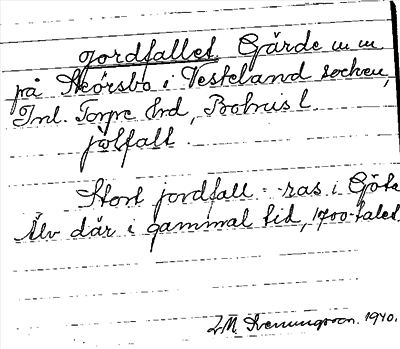 jordfallet. Gärde m m
på Skörsbo i Vesterland socken,
Inl. Torpe hrd, Bohus l.
jolfall.
Stort jordfall - ras i Göta
Älv där i gammal tid, 1700-talet.
1940.